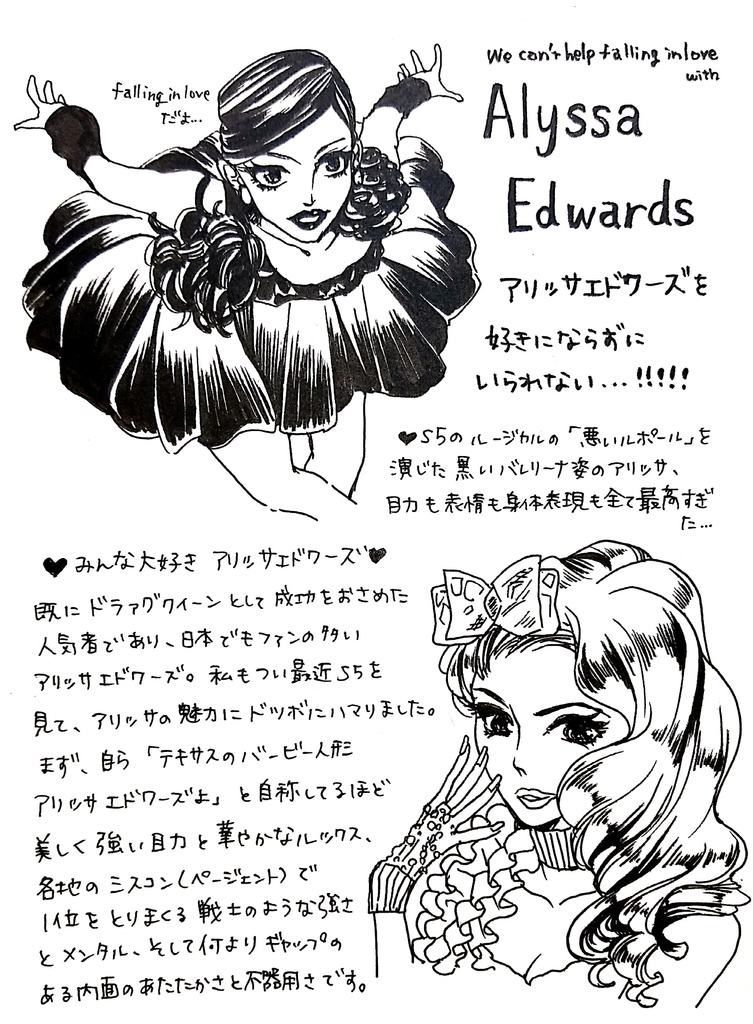 We can't help falling in love
with
Alyssa
Edwards
falling in love
だよ...
アリッサエドワーズを
好きにならずに
いられない...!!!!!
♥S5のルージカルの「悪いルポール」を
演じた黒いバレリーナ姿のアリッサ、
目力も表情も身体表現も全て最高すぎ
た...
♥みんな大好き アリッサエドワーズ♥
既にドラァグクイーンとして成功をおさめた
人気者であり、日本でもファンの多い
アリッサエドワーズ。私もつい最近S5を
見て、アリッサの魅力にドツボにハマりました。
まず、自ら「テキサスのバービー人形
アリッサエドワーズよ」と自称してるほど
美しく強い目力と華やかなルックス、
各地のミスコン(ページェント)で
1位をとりまくる戦士のような強さ
とメンタル、そして何よりギャップの
ある内面のあたたかさと不器用さです。